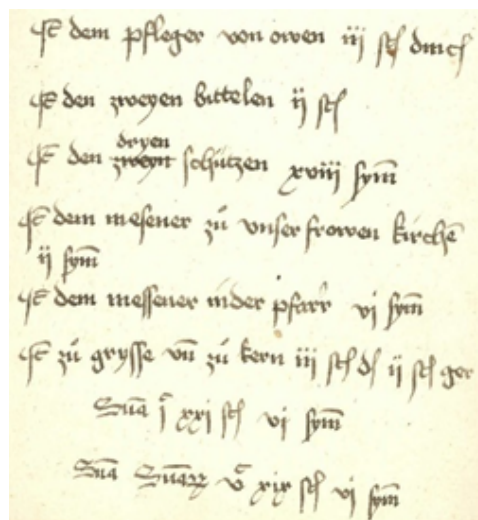 It dem pfleger von owen iij sch dinch
It den zweyen bittelen ij sch
It den dryen schützen xviij sym̄
It dem mesener zů vnser frowen kirchē
ij sym̄
It dem messener in der pfarr vj sym̄
It zů grysse vn̄ zů kern iij sch d ij sch ger
Sūa j xxj sch vj sym̄
Sūa Sūaꝝ v xix sch vj sym̄